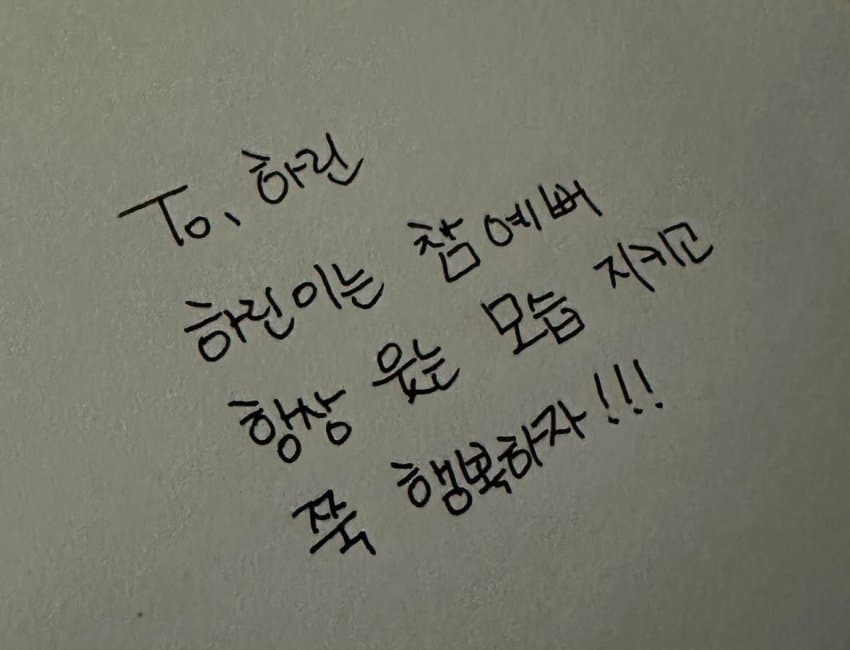 To, 하린
하린이는 참 예뻐
항상 웃는 모습 지키고
쭉 행복하자!!!